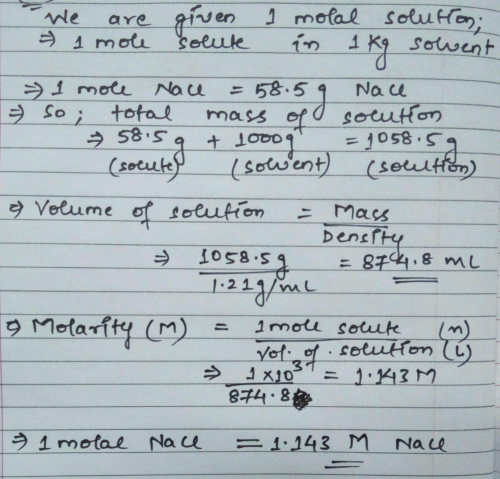 We are given 1 molal solution;
⇒ 1 mole solute in 1 Kg solvent
⇒ 1 mole NaCl = 58.5 g NaCl
⇒ So; total mass of solution
⇒ 58.5 g + 1000g = 1058.5 g
(solute) (solvent) (solution)
⇒ Volume of solution = Mass
Density
⇒ 1058.5 g = 874.8 mL
1.21 g/mL
⇒ Molarity (M) = 1 mole solute (n)
Vol. of. solution (L)
⇒ 1 × 10³ = 1.143 M
874.8
⇒ 1 molal NaCl = 1.143 M NaCl